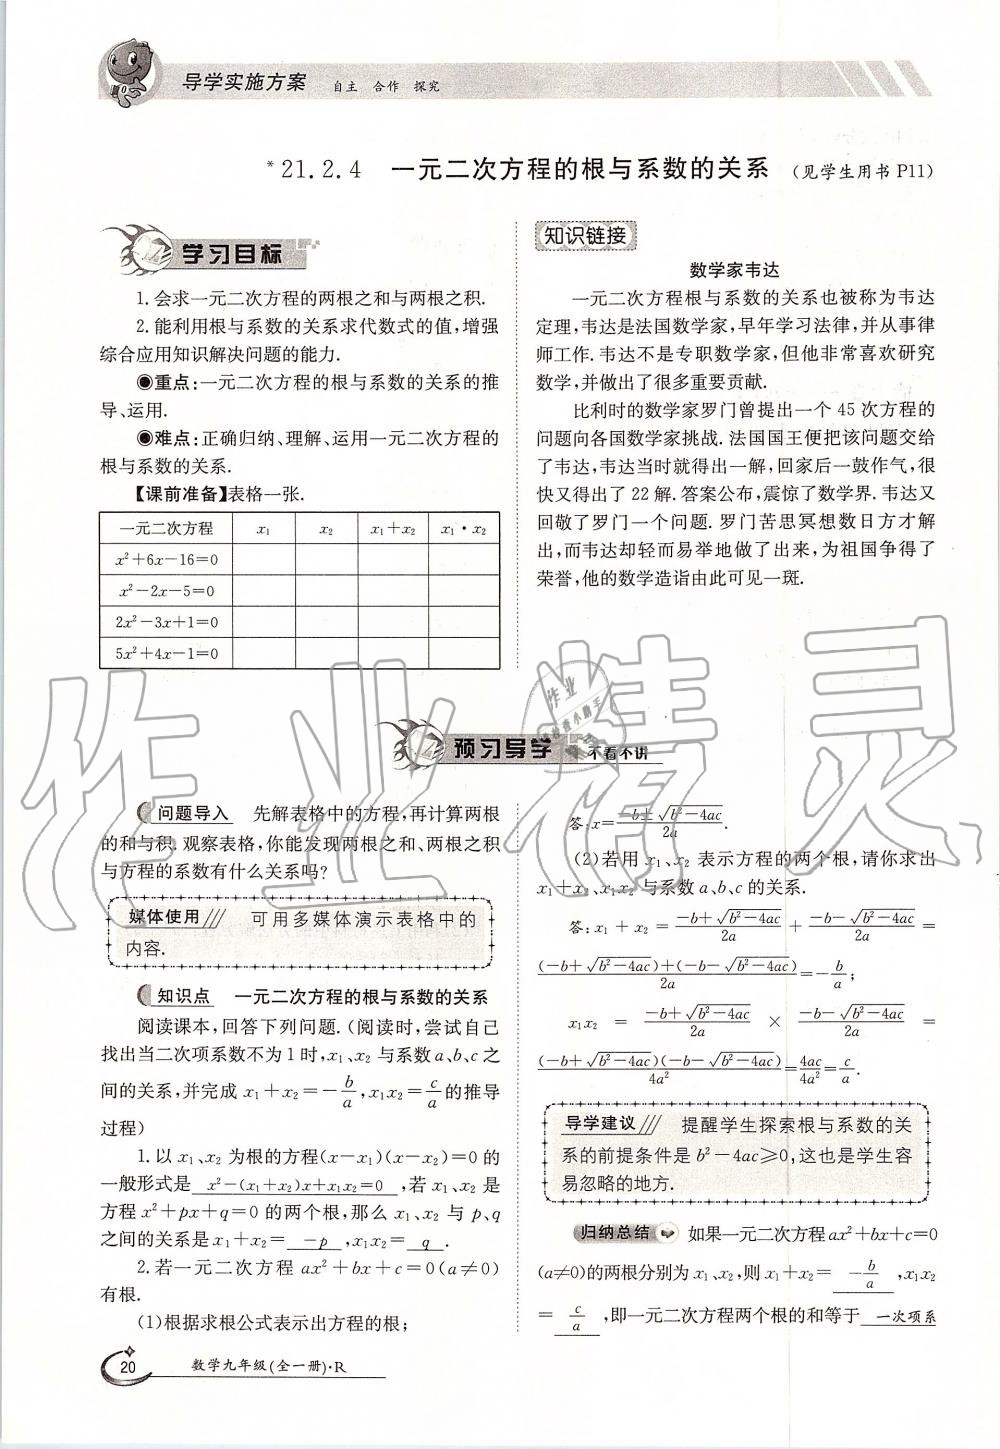 导学实施方案 自主 合作 探究
*21.2.4 一元二次方程的根与系数的关系 (见学生用书 P11)
学习目标
1. 会求一元二次方程的两根之和与两根之积.
2. 能利用根与系数的关系求代数式的值,增强
综合应用知识解决问题的能力.
◉重点:一元二次方程的根与系数的关系的推
导、运用.
◉难点:正确归纳、理解、运用一元二次方程的
根与系数的关系.
【课前准备】表格一张.
一元二次方程 x₁ x₂ x₁+x₂ x₁·x₂
x²+6x-16=0
x²-2x-5=0
2x²-3x+1=0
5x²+4x-1=0
知识链接
数学家韦达
一元二次方程根与系数的关系也被称为韦达
定理,韦达是法国数学家,早年学习法律,并从事律
师工作. 韦达不是专职数学家,但他非常喜欢研究
数学,并做出了很多重要贡献.
比利时的数学家罗门曾提出一个 45 次方程的
问题向各国数学家挑战. 法国国王便把该问题交给
了韦达,韦达当时就得出一解,回家后一鼓作气,很
快又得出了 22 解. 答案公布,震惊了数学界. 韦达又
回敬了罗门一个问题. 罗门苦思冥想数日方才解
出,而韦达却轻而易举地做了出来,为祖国争得了
荣誉,他的数学造诣由此可见一斑.
预习导学 不看不讲
问题导入 先解表格中的方程,再计算两根
的和与积. 观察表格,你能发现两根之和、两根之积
与方程的系数有什么关系吗?
媒体使用 可用多媒体演示表格中的
内容.
知识点 一元二次方程的根与系数的关系
阅读课本,回答下列问题.(阅读时,尝试自己
找出当二次项系数不为1时,x₁、x₂与系数a、b、c之
间的关系,并完成 x₁+x₂=-b/a,x₁x₂=c/a的推导
过程)
1. 以 x₁、x₂ 为根的方程(x-x₁)(x-x₂)=0 的
一般形式是 x²-(x₁+x₂)x+x₁x₂=0 ,若 x₁、x₂ 是
方程 x²+px+q=0 的两个根,那么 x₁、x₂ 与 p、q
之间的关系是 x₁+x₂= -p ,x₁x₂= q .
2. 若一元二次方程 ax²+bx+c=0(a≠0)
有根.
(1)根据求根公式表示出方程的根;
答:x=(-b±√(b²-4ac))/2a.
(2)若用 x₁、x₂ 表示方程的两个根,请你求出
x₁+x₂、x₁x₂ 与系数 a、b、c 的关系.
答:x₁+x₂=(-b+√(b²-4ac))/2a+(-b-√(b²-4ac))/2a=
((-b+√(b²-4ac))+(-b-√(b²-4ac)))/2a=-b/a;
x₁x₂=(-b+√(b²-4ac))/2a×(-b-√(b²-4ac))/2a=
((-b+√(b²-4ac))(-b-√(b²-4ac)))/4a²=4ac/4a²=c/a.
导学建议 提醒学生探索根与系数的关
系的前提条件是 b²-4ac≥0,这也是学生容
易忽略的地方.
归纳总结 如果一元二次方程 ax²+bx+c=0
(a≠0)的两根分别为 x₁、x₂,则 x₁+x₂= -b/a ,x₁x₂
= c/a ,即一元二次方程两个根的和等于 一次项系
20 数学九年级(全一册)·R
作业精灵